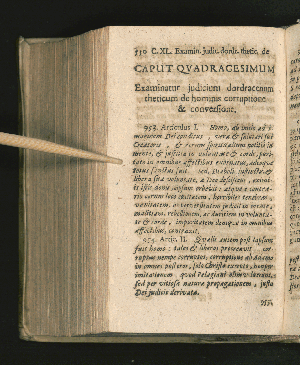 350 C. XL. Examin. judic. dordr. thetic. de
CAPUT QVADRAGESIMUM
Examinatur judicium dordracenum
theticum de hominis corruptione
& conversione.
953. Articulus I. Homo, ab initio ad i-
maginem Dei conditus, vera & salutari sui
Creatoris, & rerum spiritualium notitia in
mente, & justitia in voluntate & corde, puri-
tate in omnibus affectibus exornatus, adeoque
totus sanctus fuit. sed Diaboli instinctu, &
libera sua voluntate, a Deo desciscens, eximi-
is istis donis seipsum orbavit: atque e contra-
rio eorum loco caecitatem, horribiles tenebras,
vanitatem, ac perversitatem judicii in mente,
malitiam, rebellionem, ac duritiem in volunta-
te & corde, impuritatem denique in omnibus
affectibus, contraxit.
954. Artic. II. Qualis autem post lapsum
fuit homo; tales & liberos procreavit,
corruptus nempe corruptos, corruptione ab Adamo
in omnes posteros, solo Christo excepto, non per
imitationem quod Pelagiani olim voluerunt,
sed per vitiosae naturae propagationem, justo
Dei judicio derivata.